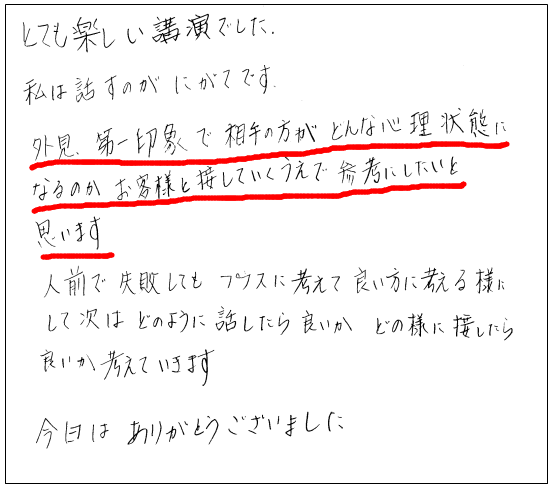 とても楽しい講演でした.
私は話すのが にがてです.
外見、第一印象で 相手の方が どんな心理状態に
なるのか お客様と接していくうえで 参考にしたいと
思います
人前で 失敗しても プラスに考えて 良い方に考える様に
して次は どのように 話したら 良いか どの様に 接したら
良いか 考えていきます
今日は ありがとうございました